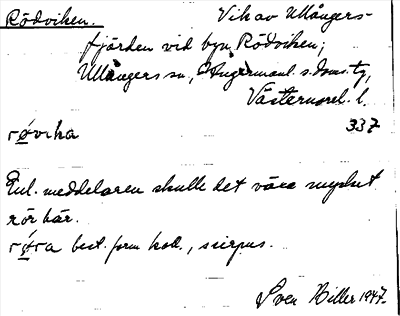 Rödviken. Vik av Ullångers-
fjärden vid byn Rödviken;
Ullångers sn, Ångermanl. s. doms. tg,
Västernorrl. l.
røvika 337
Enl. meddelaren skulle det växa mycket
rör här.
røra best. form koll., scirpus.
Sven Biller 1947.